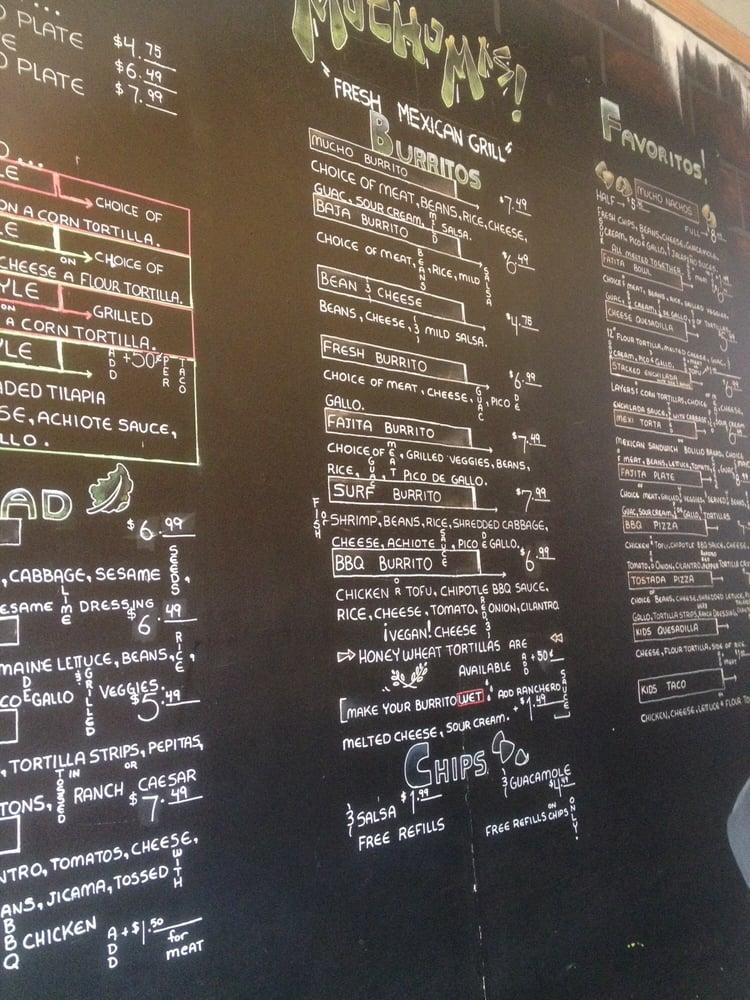 PLATE $4.75
$6.49
PLATE $7.99
CHOICE OF
ON A CORN TORTILLA.
ON CHOICE OF
CHEESE A FLOUR TORTILLA.
STYLE GRILLED
ON A CORN TORTILLA.
ADD +50¢ PER TACO
TILAPIA
ACHIOTE SAUCE,
$6.99
, CABBAGE, SESAME SEEDS,
LIME DRESSING
$6.49
LETTUCE, BEANS, RICE,
GALLO GRILLED VEGGIES.
$5.49
, TORTILLA STRIPS, PEPITAS,
TOSSED IN RANCH OR CAESAR
$7.49
TOMATOS, CHEESE,
JICAMA, TOSSED WITH
BBQ CHICKEN ADD +$1.50 for meat
MUCHO MAS!
"FRESH MEXICAN GRILL"
BURRITOS
MUCHO BURRITO
CHOICE OF MEAT, BEANS, RICE, CHEESE, $7.49
GUAC, SOUR CREAM, MILD SALSA.
BAJA BURRITO $6.49
CHOICE OF MEAT, BEANS, RICE, MILD SALSA
BEAN & CHEESE $4.75
BEANS, CHEESE, & MILD SALSA.
FRESH BURRITO $6.99
CHOICE OF MEAT, CHEESE, GUAC, PICO DE
GALLO.
FAJITA BURRITO $7.49
CHOICE OF MEAT, GRILLED VEGGIES, BEANS,
RICE, GUAC, PICO DE GALLO.
SURF BURRITO $7.99
FISH OR SHRIMP, BEANS, RICE, SHREDDED CABBAGE,
CHEESE, ACHIOTE SAUCE, PICO DE GALLO.
BBQ BURRITO $6.99
CHICKEN OR TOFU, CHIPOTLE BBQ SAUCE,
RICE, CHEESE, TOMATO, RED ONION, CILANTRO.
¡VEGAN! CHEESE &
HONEY WHEAT TORTILLAS ARE
AVAILABLE ADD +50¢
MAKE YOUR BURRITO WET: ADD RANCHERO SAUCE
MELTED CHEESE, SOUR CREAM. +$1.49
CHIPS
& SALSA $1.99
FREE REFILLS
& GUACAMOLE $4.49
FREE REFILLS ON CHIPS ONLY.
FAVORITOS!
MUCHO NACHOS
HALF FULL
FRESH CHIPS, BEANS, CHEESE, GUACAMOLE,
CREAM, PICO GALLO, JALAPEÑO SLICES
ALL MELTED TOGETHER.
FAJITA BOWL
CHOICE MEAT, BEANS, RICE, GRILLED VEGGIES,
CHEESE QUESADILLA
12" FLOUR TORTILLA, MELTED CHEESE, GUAC,
CREAM, PICO GALLO.
STACKED ENCHILADA
LAYERS CORN TORTILLAS, CHOICE CHEESE,
ENCHILADA SAUCE
MEXI TORTA
MEXICAN SANDWICH BOLILLO BREAD, CHOICE
MEAT, BEANS, LETTUCE, TOMATO,
FAJITA PLATE
CHOICE MEAT, GRILLED VEGGIES, SERVED BEANS
GUAC, SOUR CREAM, TORTILLAS
BBQ PIZZA
CHICKEN TOFU, CHIPOTLE BBQ SAUCE, CHEESE,
TOMATO, ONION, CILANTRO
TOSTADA PIZZA
CHOICE BEANS, CHEESE, SHREDDED LETTUCE,
GALLO, TORTILLA STRIPS, RANCH DRESSING,
KIDS QUESADILLA
CHEESE, FLOUR TORTILLA, SIDE OF RICE
KIDS TACO
CHICKEN, CHEESE, LETTUCE FLOUR